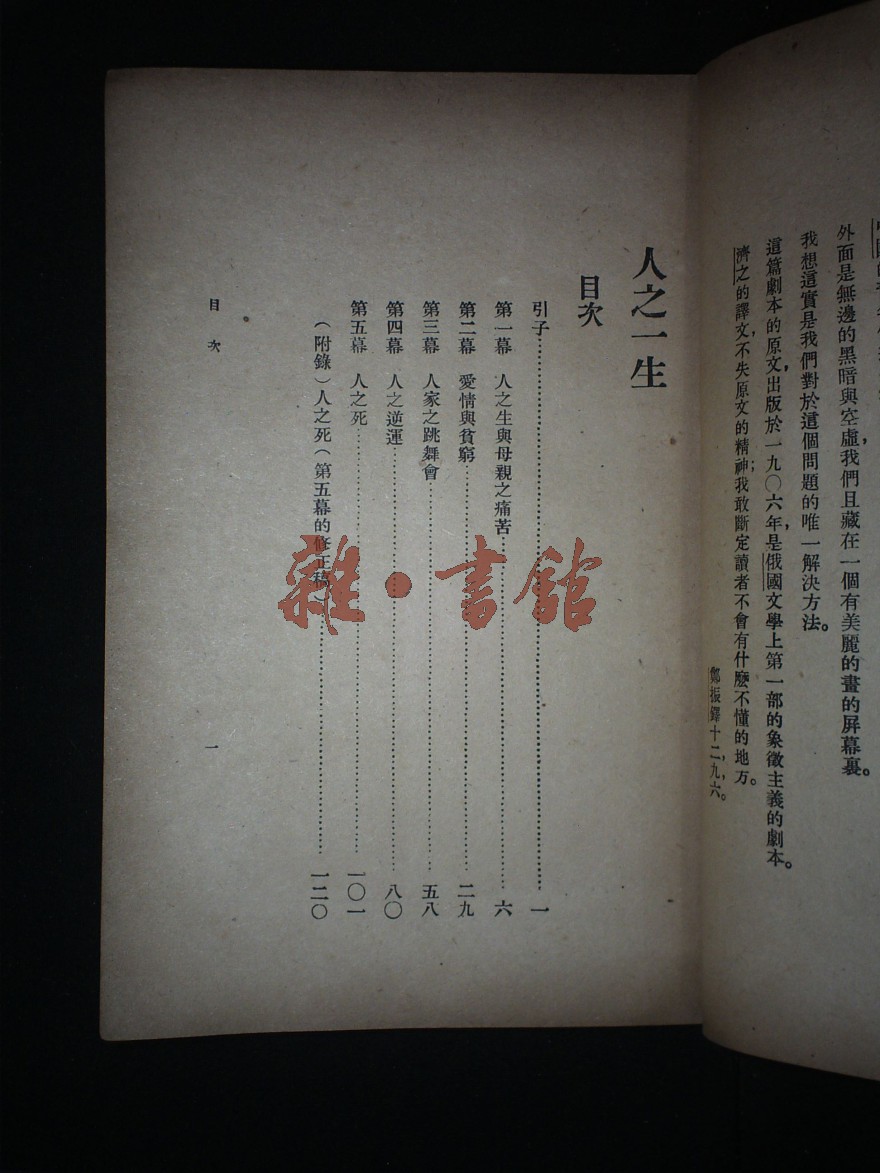 外面是無邊的黑暗與空虛，我們且藏在一個有美麗的畫的屏幕裏。
我想這實是我們對於這個問題的唯一解決方法。
這篇劇本的原文，出版於一九〇六年，是俄國文學上第一部的象徵主義的劇本。
濟之的譯文，不失原文的精神；我敢斷定讀者不會有什麼不懂的地方。
鄭振鐸十二，九，六。
人之一生
目次
引子……一
第一幕　人之生與母親之痛苦……六
第二幕　愛情與貧窮……二九
第三幕　人家之跳舞會……五八
第四幕　人之逆運……八〇
第五幕　人之死……一〇一
（附錄）人之死（第五幕的修正稿）……一二〇
目次
一
雜·書館